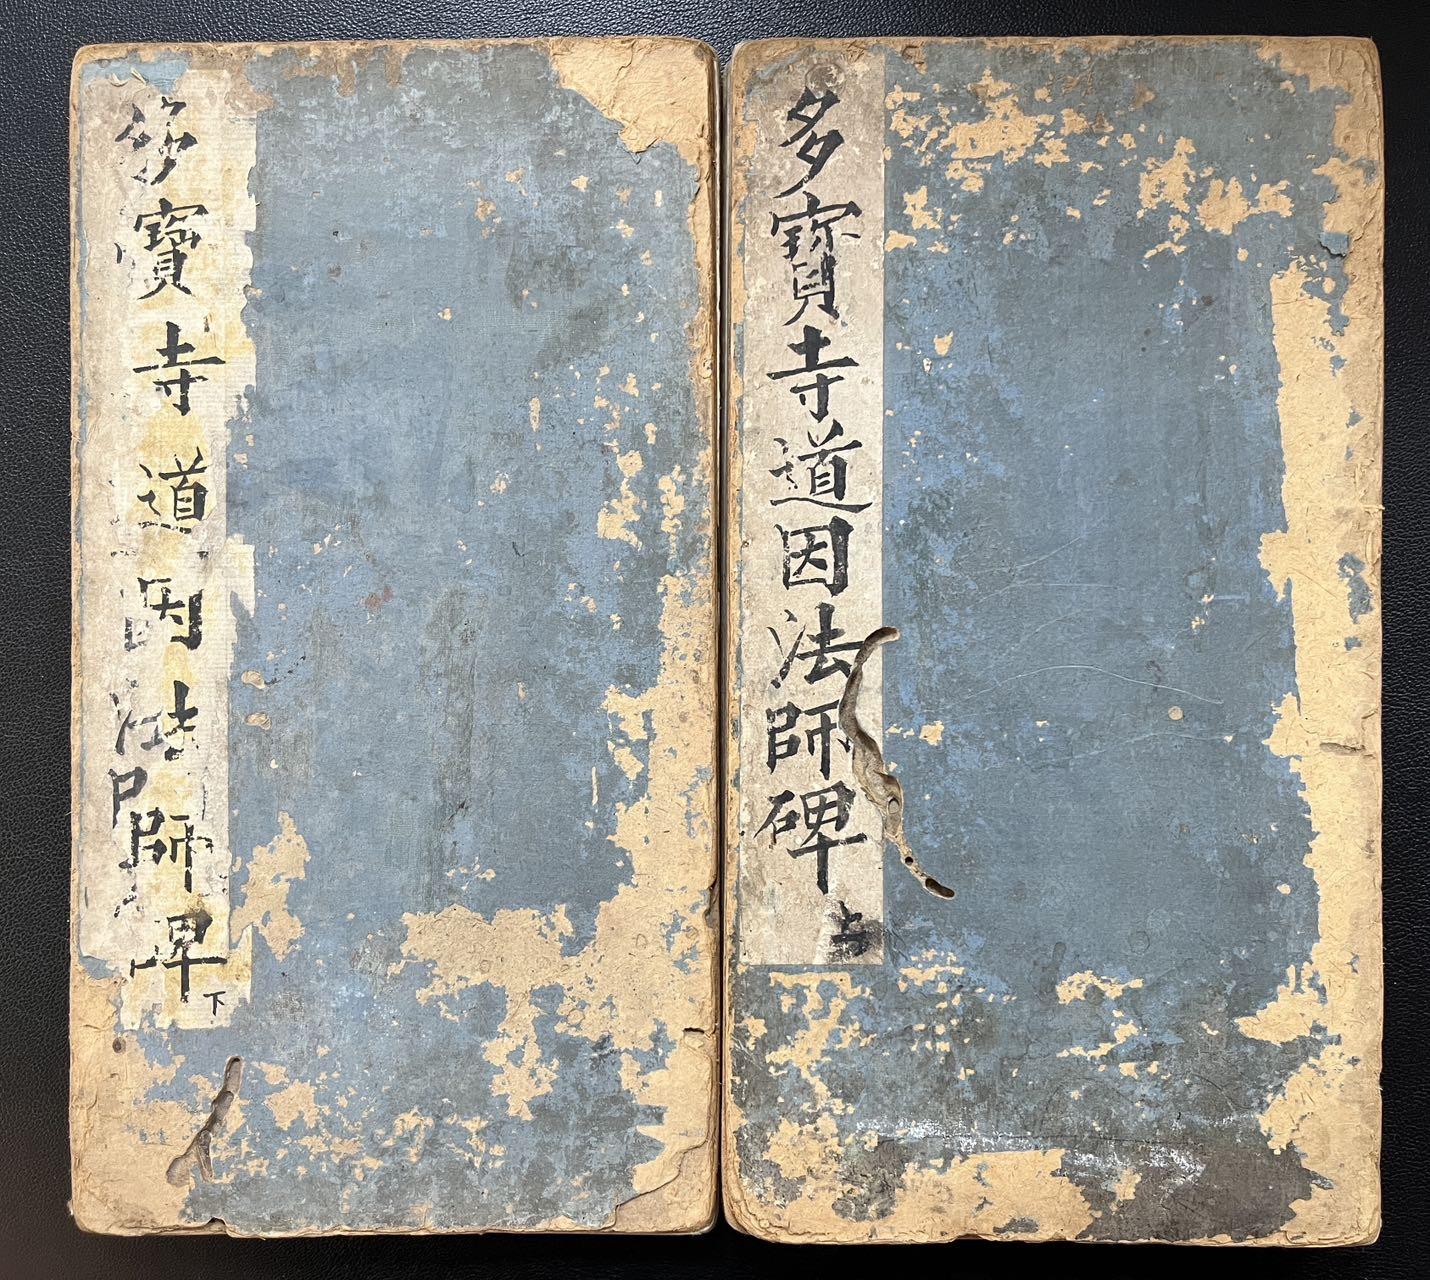 多寶寺道因法師碑 上
多寶寺道因法師碑 下